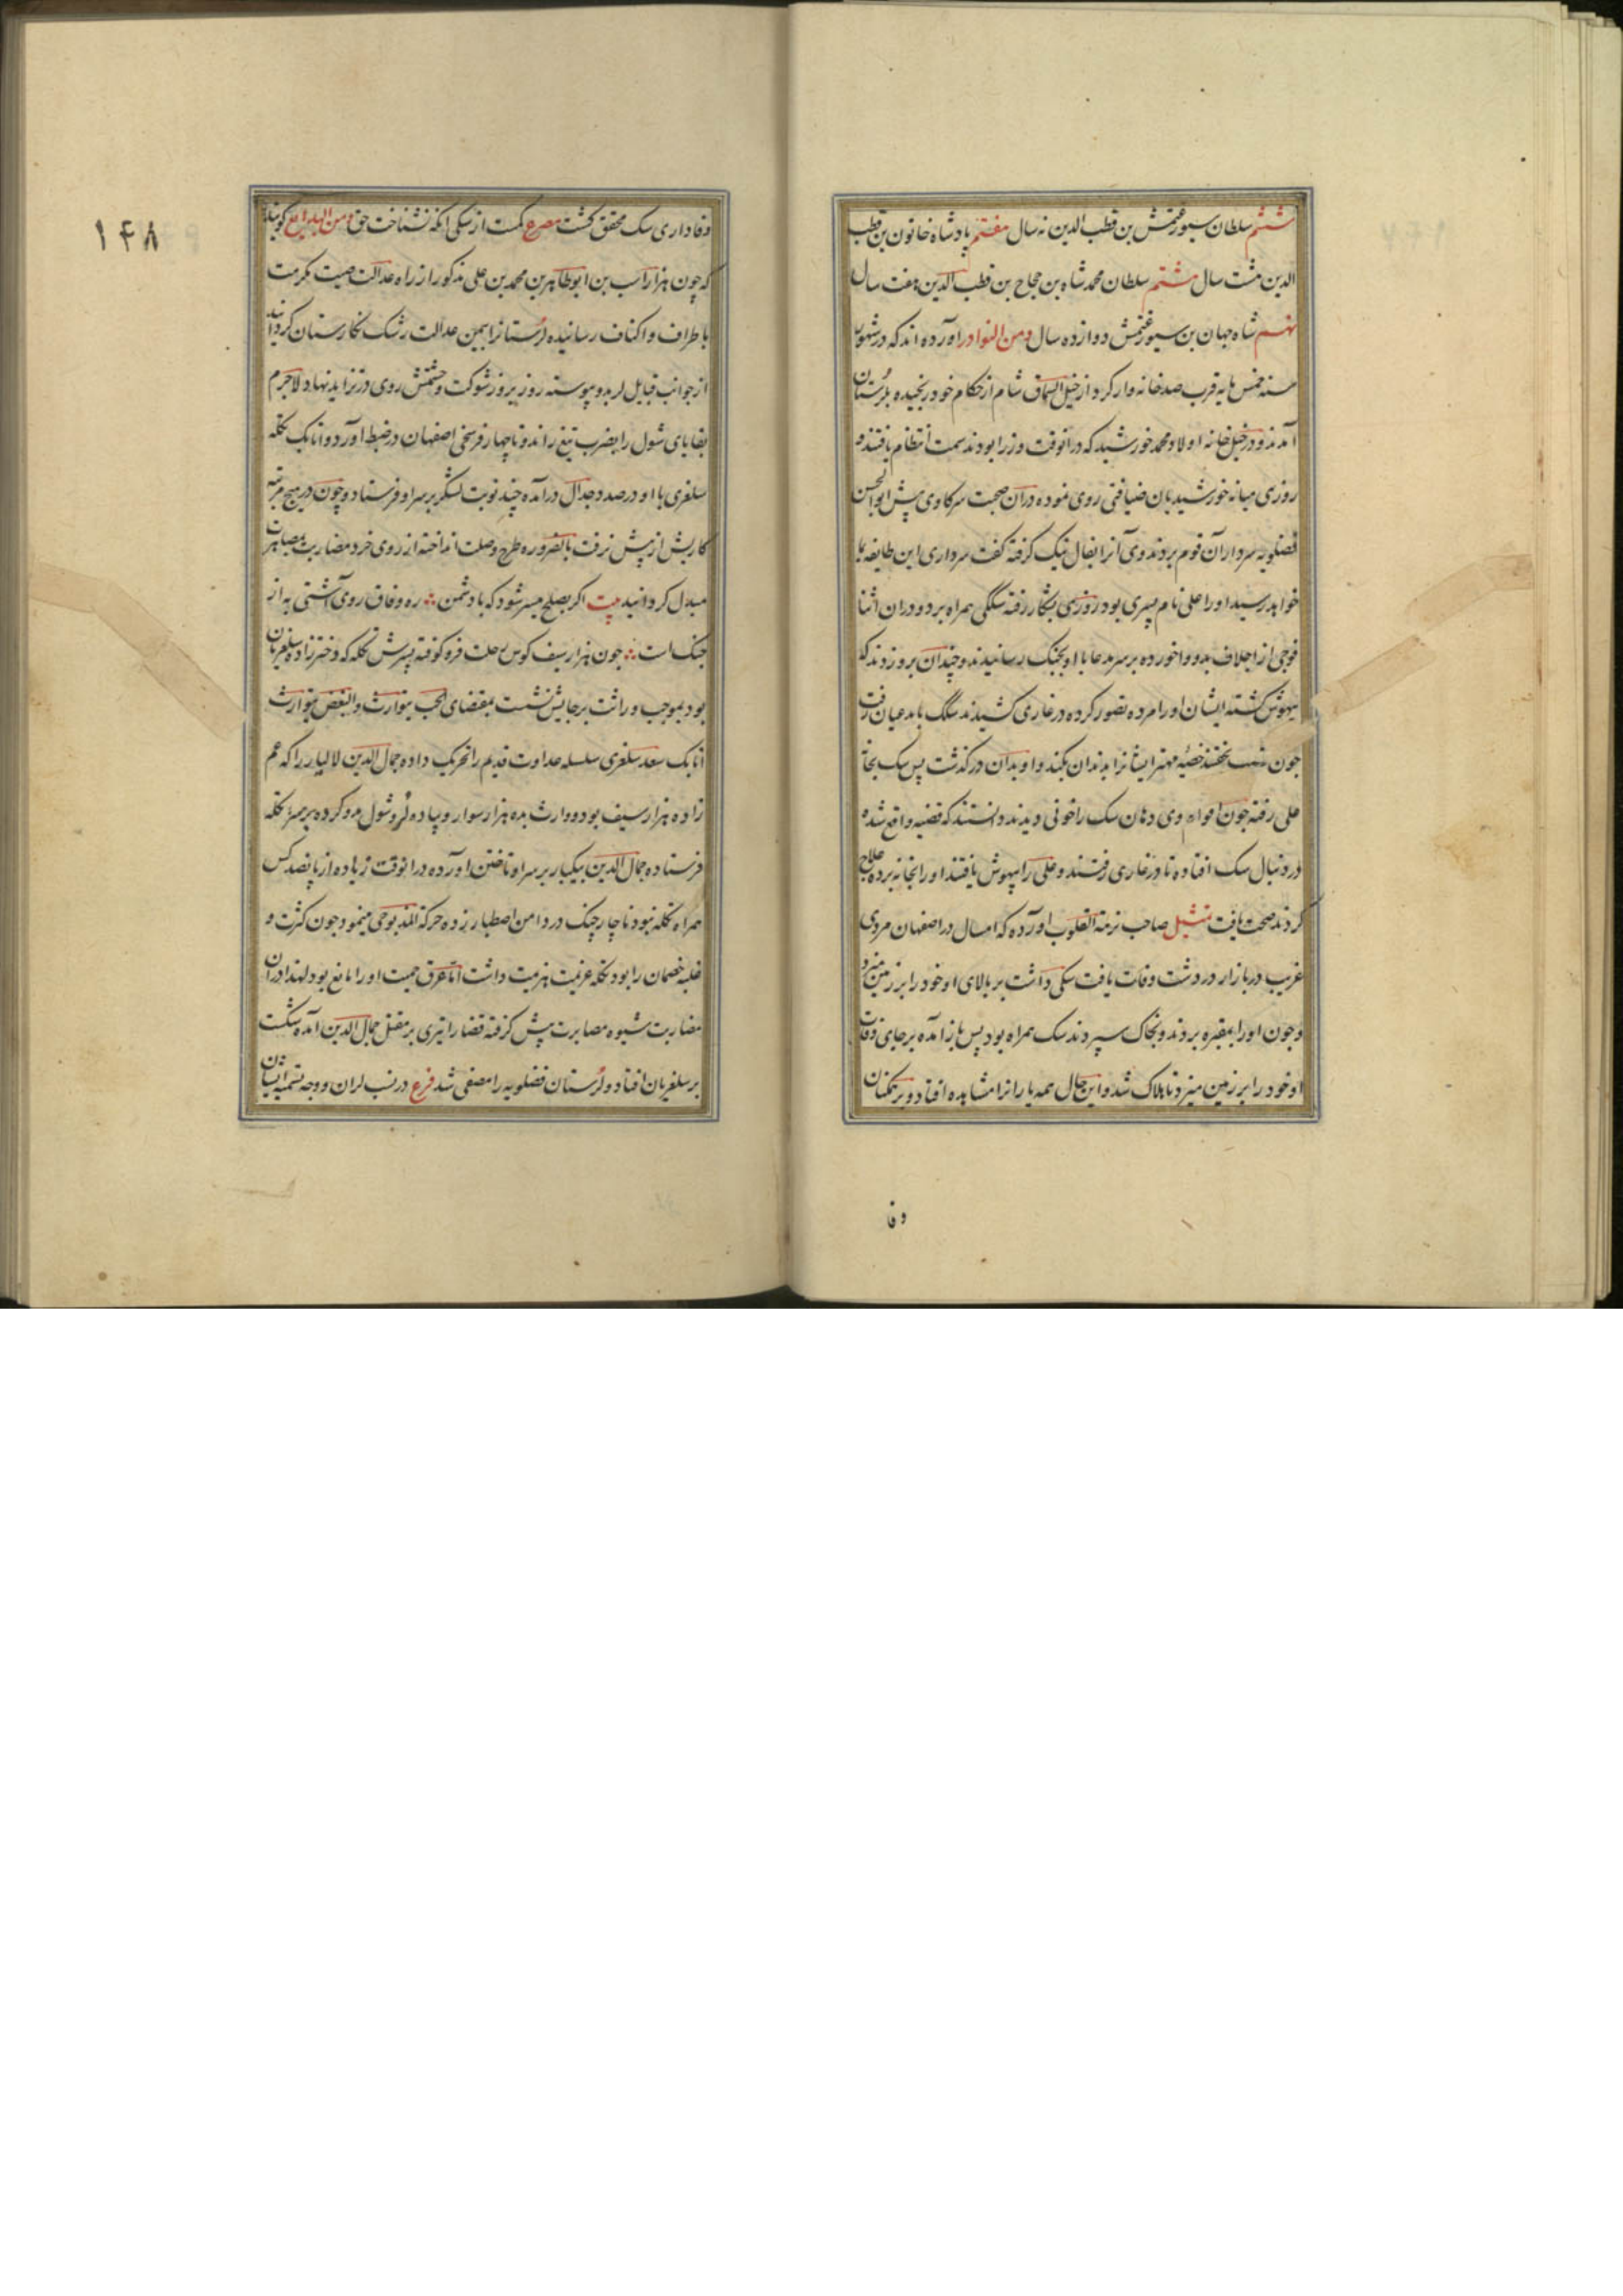 ششم سلطان سیورغتمش بن قطب الدین نه سال هفتم پادشاه خاتون بن قطب
الدین هشت سال هشتم سلطان محمد شاه بن حجاج بن قطب الدین هفت سال
نهم شاه جهان بن سیورغتمش دوازده سال ومن النوادر اورده اند که در شهور
سنه خمس مایه قرب صد خانه وار کرد از جبل السماق شام از حکام خود رنجیده بلرستان
آمدند و در خیل خانه اولاد محمد خورشید که در انوقت وزرا بودند سمت انتظام یافتند و
روزی میانه خورشیدیان ضیافتی روی نموده در ان صحبت سر کاوی پیش ابوالحسن
فضلویه سردار آن قوم بردند وی آنرا بفال نیک گرفته گفت سرداری این طایفه بما
خواهد رسید او را علی نام پسری بود روزی بشکار رفته سگکی همراه برد و در ان اثنا
فوجی از اجلاف بدو واخورده بر سر مدعا با او بجنگ رسانیدند و چندان برو زدند که
بیهوش گشته ایشان او را مرده تصور کرده در غاری کشیدند سگ با مدعیان رفت
چون شب بخفتند خصیهٔ مهتر ایشانرا بدندان بکند و او بدان درگذشت پس سک بخانه
علی رفته چون اقوام وی دهان سک را خونی دیدند دانستند که قضیه واقع شده
در دنبال سک افتاده تا در غاری رفتند و علی را بیهوش یافتند او را بخانه برده علاج
کردند صحت یافت تمثیل صاحب نزهة القلوب اورده که امسال در اصفهان مردی
غریب در بازار دردشت وفات یافت سکی داشت بر بالای او خود را بر زمین میزد
و چون او را بمقبره بردند و بخاک سپردند سک همراه بود پس باز آمده بر جای وفات
او خود را بر زمین میزد تا هلاک شد و این حال همه یارانرا مشاهده افتاد و بر همکنان
وفا
۱۴۸
وفاداری سک محقق گشت مصرع کمست از سکی انکه نشناخت حق ومن البدایع گویند
که چون هزاراسب بن ابوطاهر بن محمد بن علی مذکور از راه عدالت صیت مکرمت
باطراف و اکناف رسانیده لرستانرا بیمن عدالت رشک نکارستان گردانید
از جوانب قبایل لر بدو پیوسته روز بروز شوکت و حشمتش روی در تزاید نهاد لاجرم
بقایای شول را بضرب تیغ راند و تا چهار فرسخی اصفهان در ضبط آورد و اتابک تکله
سلغری با او در صدد جدال درآمده چند نوبت لشکر بر سر او فرستاد و چون در هیچ مرتبه
کاریش از پیش نرفت بالضروره طرح وصلت انداخته از روی خرد مضاربت بمصاهرت
مبدل گردانید بیت اگر بصلح میسر شود که با دشمن ره وفاق روی آشتی به از
جنک است چون هزارسیف کوس رحلت فرو کوفته پسرش تکله که دخترزاده سلغریان
بود بموجب وراثت بر جایش نشست بمقتضای الحب یتوارث والبغض یتوارث
اتابک سعد سلغری سلسله عداوت قدیم را تحریک داده جمال الدین لالیار را که عم
زاده هزارسیف بود و وارث بده هزار سوار و پیاده لر و شول مدد کرده بر سر تکله
فرستاده جمال الدین بیکبار بر سر او تاختن اورده در انوقت زیاده از پانصد کس
همراه تکله نبود ناچار چنک در دامن اصطبار زده حرکة المذبوحی مینمود چون کثرت و
غلبه خصمان را بود تکله عزیمت هزیمت داشت اما عرق حمیت او را مانع بود لهذا در ان
مضاربت شیوه مصابرت پیش گرفته قضا را تیری بر مقتل جمال الدین آمده شکست
بر سلغریان افتاد و لرستان فضلویه را مصفی شد فرع در نسب لران و وجه تسمیه ایشان